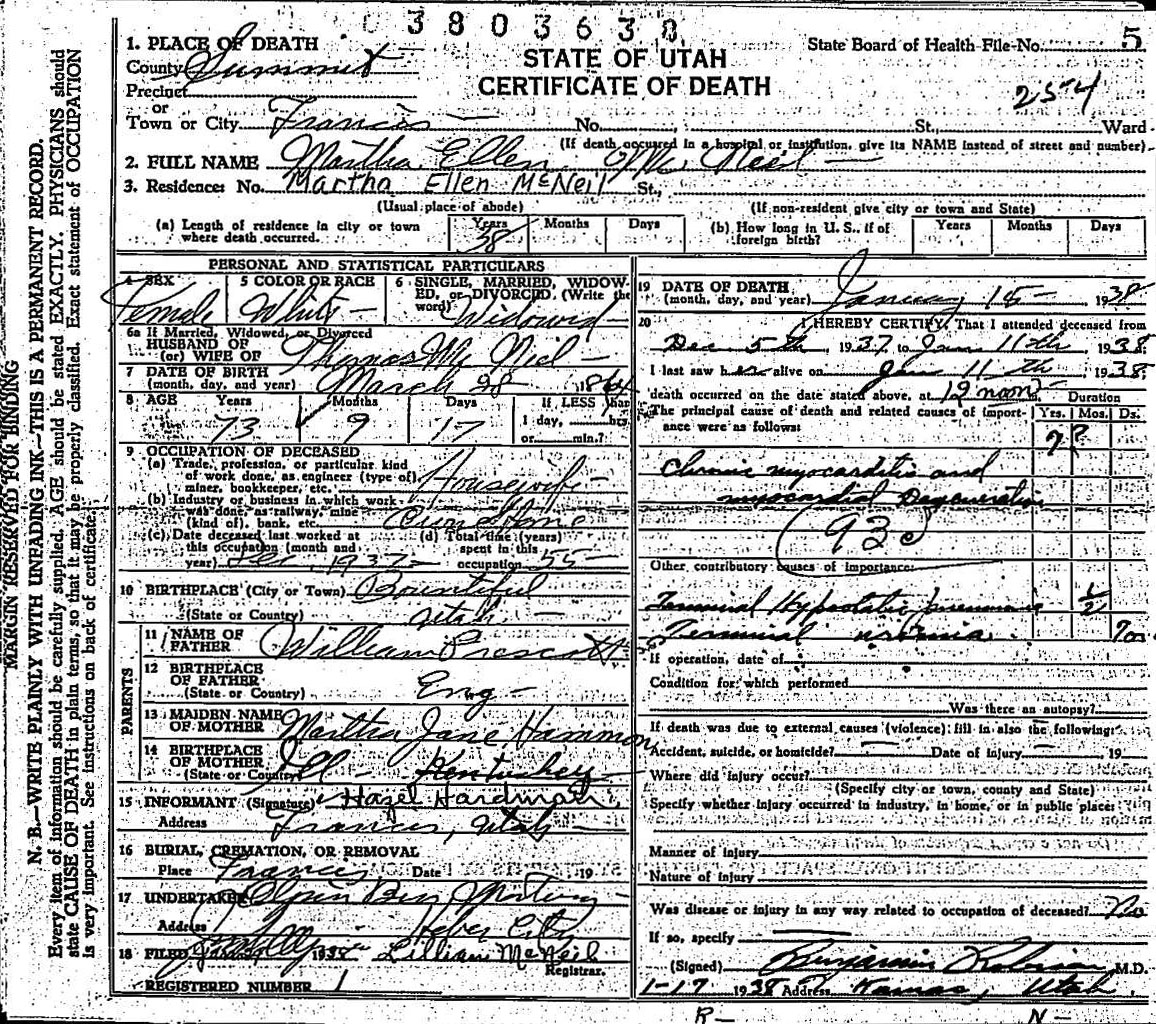 3803630
STATE OF UTAH
CERTIFICATE OF DEATH
State Board of Health File No. 5
254
1. PLACE OF DEATH
County Summit
Precinct
or
Town or City Francis No. , St., Ward
(If death occurred in a hospital or institution, give its NAME instead of street and number)
2. FULL NAME Martha Ellen Mc Neil
3. Residence: No. Martha Ellen McNeil St.,
(Usual place of abode) (If non-resident give city or town and State)
(a) Length of residence in city or town where death occurred. Years 38 Months Days
(b) How long in U. S., if of foreign birth? Years Months Days
PERSONAL AND STATISTICAL PARTICULARS
4 SEX Female
5 COLOR OR RACE White
6 SINGLE, MARRIED, WIDOWED, or DIVORCED. (Write the word) Widowed
6a If Married, Widowed, or Divorced
HUSBAND OF
(or) WIFE OF Thomas Mc Niel
7 DATE OF BIRTH
(month, day, and year) March 28 1864
8 AGE Years 73 Months 9 Days 17 If LESS than 1 day, hrs. or min.?
9 OCCUPATION OF DECEASED
(a) Trade, profession, or particular kind of work done, as engineer (type of), miner, bookkeeper, etc. Housewife
(b) Industry or business in which work was done, as railway, mine (kind of), bank, etc. Home
(c) Date deceased last worked at this occupation (month and year) Dec, 1937
(d) Total time (years) spent in this occupation 55
10 BIRTHPLACE (City or Town) Bountiful
(State or Country) Utah
PARENTS
11 NAME OF FATHER William Prescott
12 BIRTHPLACE OF FATHER
(State or Country) Eng
13 MAIDEN NAME OF MOTHER Martha Jane Hammon
14 BIRTHPLACE OF MOTHER
(State or Country) Ill - Kentuckey
15 INFORMANT (Signature) Hazel Hardman
Address Francis, Utah
16 BURIAL, CREMATION, OR REMOVAL
Place Francis Date 19
17 UNDERTAKER
Address Heber City
18 FILED 1938 Lillian McNeil
Registrar.
REGISTERED NUMBER 1
19 DATE OF DEATH
(month, day, and year) January 15 1938
20 I HEREBY CERTIFY, That I attended deceased from
Dec 5th, 1937, to Jan 11th, 1938
I last saw her alive on Jan 11th, 1938,
death occurred on the date stated above, at 12 noon
Duration
The principal cause of death and related causes of importance were as follows: Yrs. Mos. Ds.
? ?
Chronic myocarditis and
myocardial Degeneration
(93c)
Other contributory causes of importance:
Terminal Hypostatic pneumonia 1/2
Terminal uremia
If operation, date of
Condition for which performed
Was there an autopsy?
If death was due to external causes (violence) fill in also the following:
Accident, suicide, or homicide? Date of injury 19
Where did injury occur?
(Specify city or town, county and State)
Specify whether injury occurred in industry, in home, or in public place:
Manner of injury
Nature of injury
Was disease or injury in any way related to occupation of deceased? No
If so, specify
(Signed) Benjamin Robison M.D.
1-17 1938 Address Kamas, Utah
R- N-
MARGIN RESERVED FOR BINDING
N. B.—WRITE PLAINLY WITH UNFADING INK—THIS IS A PERMANENT RECORD.
Every item of information should be carefully supplied. AGE should be stated EXACTLY. PHYSICIANS should
state CAUSE OF DEATH in plain terms, so that it may be properly classified. Exact statement of OCCUPATION
is very important. See instructions on back of certificate.